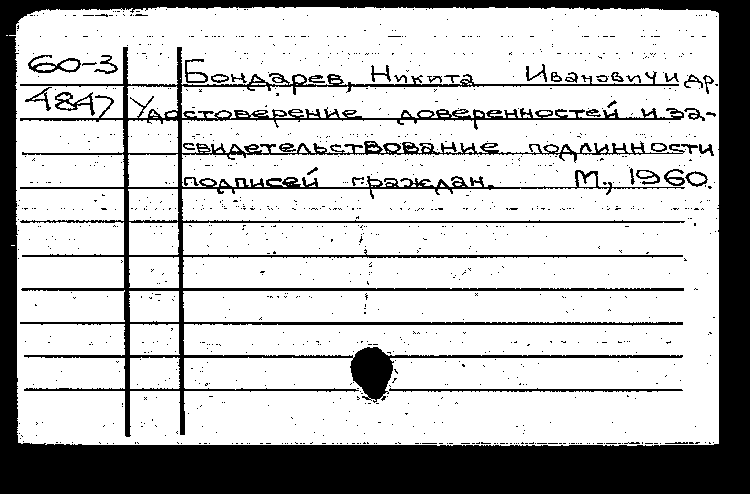 60-3 Бондарев, Никита Иванович и др.
4847 Удостоверение доверенностей и за-
свидетельствование подлинности
подписей граждан. М., 1960.